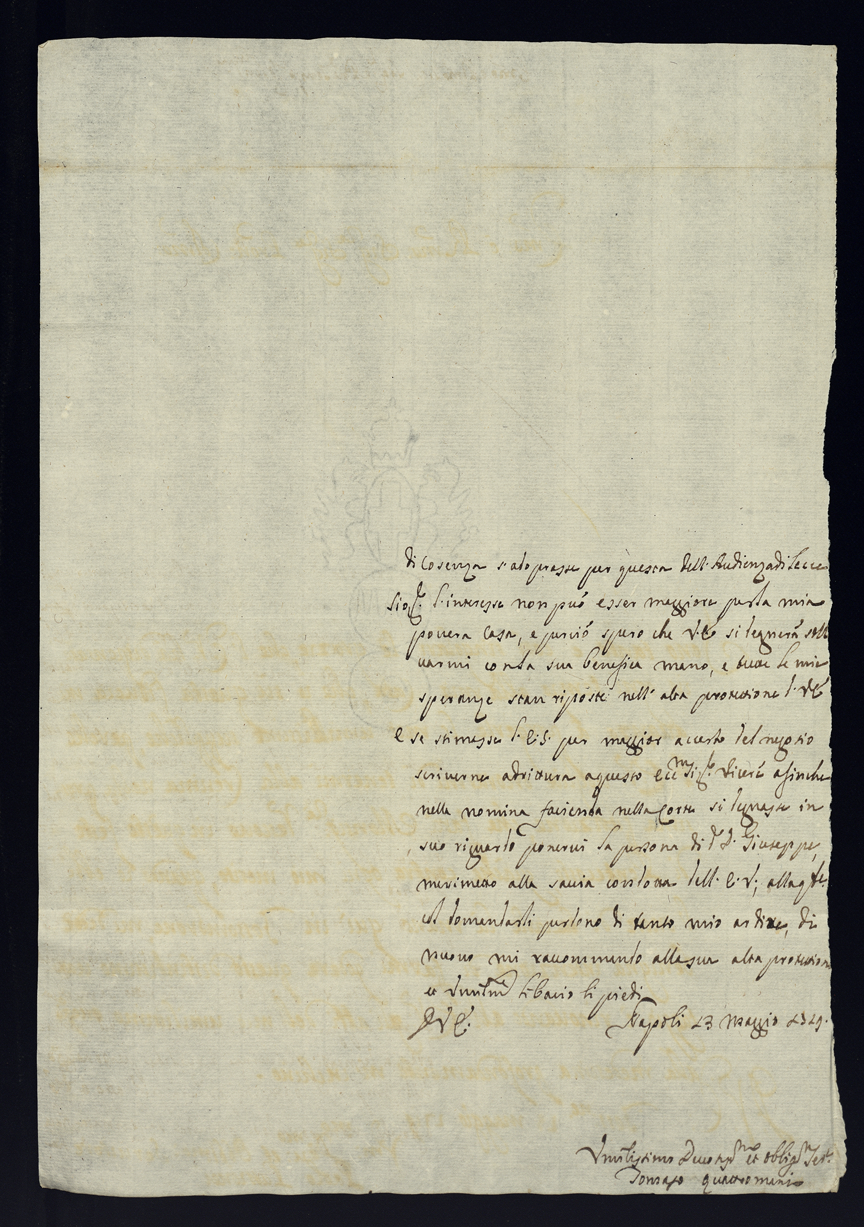 di Cosenza s'adoprasse per questa dell'Audienza di Lecce
Sig.r l'interesse non può esser maggiore per la mia
povera Casa, e perciò spero che V.E. si degnerà solle
varmi con la sua benefica mano, e tutte le mie
speranze stan riposte nell'alta protettione d. V.E.
e se stimasse l'E.S. per maggior accerto del negotio
scriverne adrittura a questo Ecc.mo Sig.r Vicerè afinche
nella nomina facienda nella Corte si degnasse in
suo riguardo ponervi la persona di d.o D. Giuseppe,
mi rimetto alla savia condotta dell'E.V.,
et domandarli perdono di tanto mio ardire, di
nuovo mi raccommando alla sua alta protettione
et Umilm.te li bacio li piedi
D V E. Napoli 23 Maggio
Umilissimo Devotis.mo et oblig.mo Ser.
Tomaso Quattromani